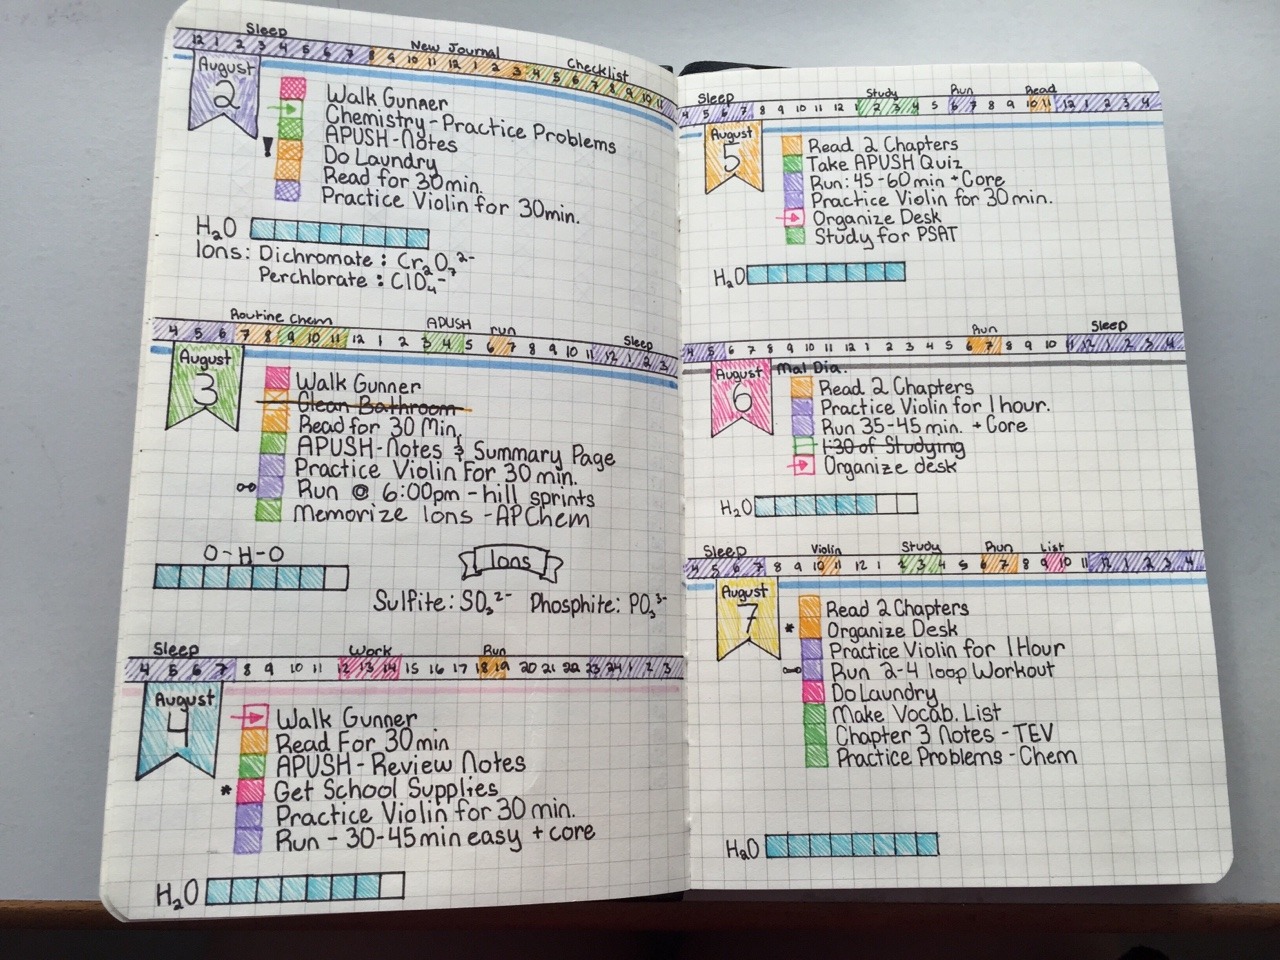 Sleep New Journal Checklist
12 1 2 3 4 5 6 7 8 9 10 11 12 1 2 3 4 5 6 7 8 9 10 11
August
2
Walk Gunner
Chemistry-Practice Problems
APUSH-Notes
! Do Laundry
Read for 30min.
Practice Violin for 30min.
H₂O
Ions: Dichromate: Cr₂O₇²⁻
Perchlorate: ClO₄⁻
Routine Chem APUSH run Sleep
4 5 6 7 8 9 10 11 12 1 2 3 4 5 6 7 8 9 10 11 12 1 2 3
August
3
Walk Gunner
Clean Bathroom
Read for 30 Min.
APUSH-Notes & Summary Page
Practice Violin For 30 min.
Run @ 6:00pm - hill sprints
Memorize Ions - AP Chem
O-H-O
Ions
Sulfite: SO₃²⁻ Phosphite: PO₃³⁻
Sleep Work Run
4 5 6 7 8 9 10 11 12 13 14 15 16 17 18 19 20 21 22 23 24 1 2 3
August
4
Walk Gunner
Read For 30min
APUSH-Review Notes
* Get School Supplies
Practice Violin for 30 min.
Run - 30-45min easy + core
H₂O
Sleep Study Run Read
4 5 6 7 8 9 10 11 12 1 2 3 4 5 6 7 8 9 10 11 12 1 2 3 4
August
5
Read 2 Chapters
Take APUSH Quiz
Run: 45-60min + Core
Practice Violin for 30min.
Organize Desk
Study for PSAT
H₂O
Run Sleep
4 5 6 7 8 9 10 11 12 1 2 3 4 5 6 7 8 9 10 11 12 1 2 3 4
August Mal Dia.
6
Read 2 Chapters
Practice Violin for 1hour.
Run 35-45min. + Core
1:30 of Studying
Organize desk
H₂O
Sleep Violin Study Run List
4 5 6 7 8 9 10 11 12 1 2 3 4 5 6 7 8 9 10 11 12 1 2 3 4
August
7
Read 2 Chapters
* Organize Desk
Practice Violin for 1Hour
Run 2-4 loop Workout
Do Laundry
Make Vocab. List
Chapter 3 Notes - TEV
Practice Problems - Chem
H₂O